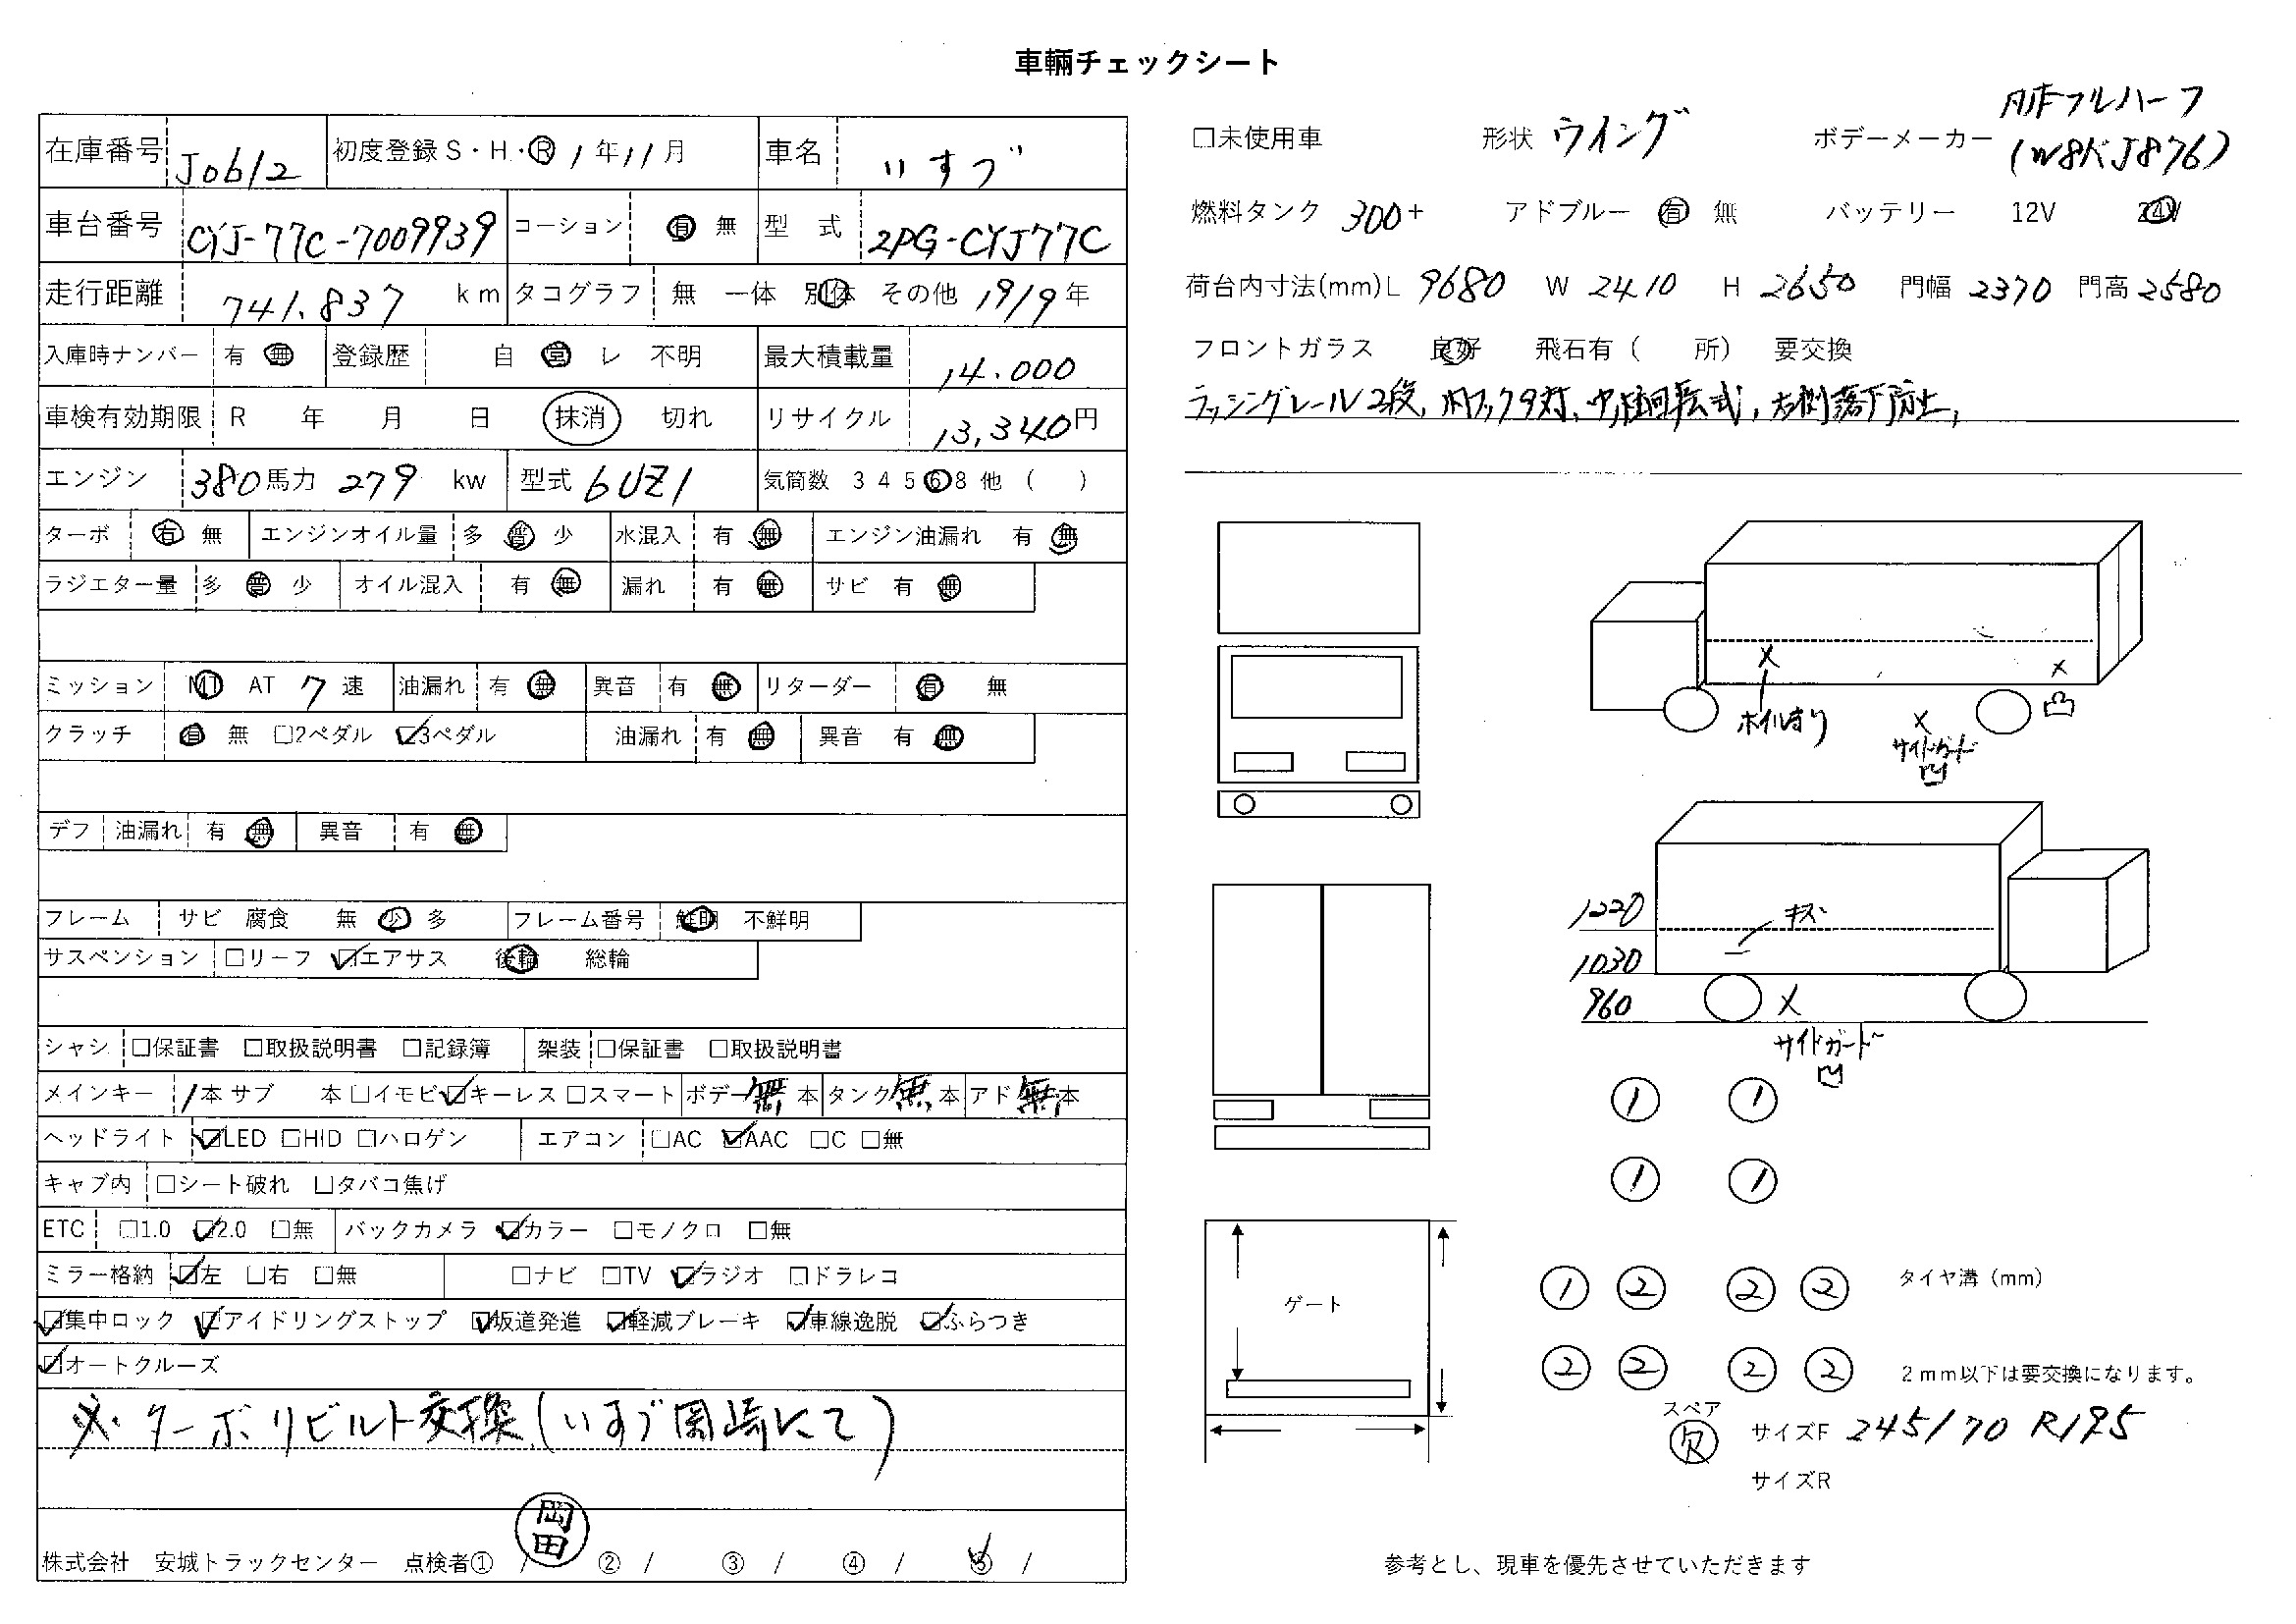 車輛チェックシート
在庫番号 J0612 初度登録 S・H・R 1年11月 車名 いすゞ
車台番号 CYJ-77C-7009939 コーション 有 無 型 式 2PG-CYJ77C
走行距離 741.837 km タコグラフ 無 一体 別体 その他 19/9年
入庫時ナンバー 有 無 登録歴 自 営 レ 不明 最大積載量 14.000
車検有効期限 R 年 月 日 抹消 切れ リサイクル 13,340円
エンジン 380馬力 279 kw 型式 6UZ1 気筒数 3 4 5 6 8 他 ( )
ターボ 有 無 エンジンオイル量 多 普 少 水混入 有 無 エンジン油漏れ 有 無
ラジエター量 多 普 少 オイル混入 有 無 漏れ 有 無 サビ 有 無
ミッション MT AT 7速 油漏れ 有 無 異音 有 無 リターダー 有 無
クラッチ 有 無 □2ペダル ☑3ペダル 油漏れ 有 無 異音 有 無
デフ 油漏れ 有 無 異音 有 無
フレーム サビ 腐食 無 少 多 フレーム番号 鮮明 不鮮明
サスペンション □リーフ ☑エアサス 後輪 総輪
シャシ □保証書 □取扱説明書 □記録簿 架装 □保証書 □取扱説明書
メインキー 1本 サブ 本 □イモビ ☑キーレス □スマート ボデー無本 タンク無本 アド無本
ヘッドライト ☑LED □HID □ハロゲン エアコン □AC ☑AAC □C □無
キャブ内 □シート破れ □タバコ焦げ
ETC □1.0 ☑2.0 □無 バックカメラ ☑カラー □モノクロ □無
ミラー格納 ☑左 □右 □無 □ナビ □TV ☑ラジオ □ドラレコ
☑集中ロック ☑アイドリングストップ ☑坂道発進 ☑軽減ブレーキ ☑車線逸脱 ☑ふらつき
☑オートクルーズ
※・ターボリビルト交換(いすゞ岡崎にて)
岡田
株式会社 安城トラックセンター 点検者① / ② / ③ / ④ / ⑤ /
□未使用車 形状 ウイング ボデーメーカー 日本フルハーフ
(W8KJ876)
燃料タンク 300+ アドブルー 有 無 バッテリー 12V 24V
荷台内寸法(mm) L 9680 W 2410 H 2650 門幅 2370 門高 2580
フロントガラス 良好 飛石有 ( 所) 要交換
ラッシングレール2段, 内フック9対, 中柱回転式, 左側落下防止,
X X
ホイル有り X 凸
サイドガード
凹
1220 キズ
1030
960 X
サイドガード
凹
1 1
1 1
1 2 2 2 タイヤ溝 (mm)
2 2 2 2 2mm以下は要交換になります。
ゲート
スペア
欠 サイズF 245/70 R19.5
サイズR
参考とし、現車を優先させていただきます